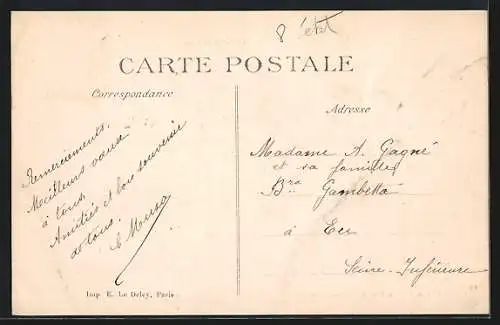 CARTE POSTALE
Correspondance
Remerciements.
Meilleurs vœux
à tous
Amitiés et bon souvenir
de tous.
Adresse
Madame A. Gagné
et sa famille
Bra Gambetta
à Eu
Seine-Inférieure
Imp. E. Le Deley, Paris